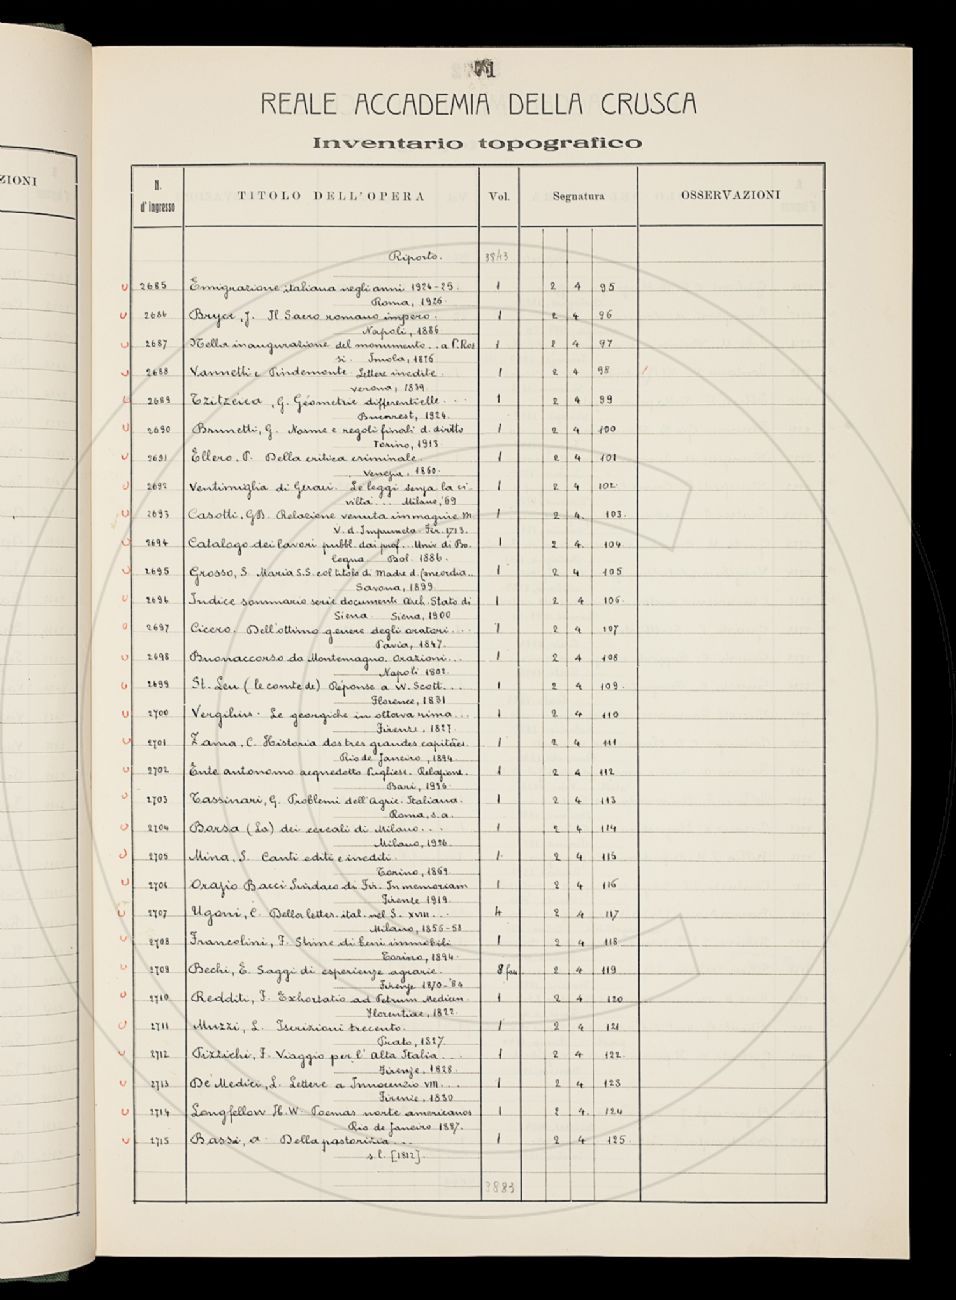 ZIONI
71
REALE ACCADEMIA DELLA CRUSCA
Inventario topografico
N. d'ingresso TITOLO DELL'OPERA Vol. Segnatura OSSERVAZIONI
Riporto. 3843
2685 Emigrazione italiana negli anni 1924-25. 1 2 4 95
Roma, 1926.
2686 Bryce, J. Il Sacro romano impero. 1 2 4 96
Napoli, 1886
2687 Nella inaugurazione del monumento... a P. Ros 1 2 4 97
si. Imola, 1876
2688 Vannetti e Pindemonte. Lettere inedite. 1 2 4 98
Verona, 1839
2689 Tzitzeica, G. Géometrie differentielle... 1 2 4 99
Bucarest, 1924.
2690 Brunetti, G. Norme e regole finali d. diritto 1 2 4 100
Torino, 1913
2691 Ellero, P. Della critica criminale. 1 2 4 101
Venezia, 1860.
2692 Ventimiglia di Geraci. Le leggi senza la ci- 1 2 4 102
viltà... Milano, '69
2693 Casotti, GB. Relazione venuta immagine M 1 2 4. 103.
V. d. Impruneta. Fir. 1713.
2694 Catalogo dei lavori pubbl. dai prof... Univ. di Bo- 1 2 4. 104
logna. Bol. 1886.
2695 Grosso, S. Maria S.S. col titolo di Madre d. Concordia.. 1 2 4 105
Savona, 1899.
2696 Indice sommario serie documenti Arch. Stato di 1 2 4 106.
Siena. Siena, 1900
2697 Cicero. Dell'ottimo genere degli oratori... 1 2 4 107
Pavia, 1847.
2698 Buonaccorso da Montemagno. Orazioni... 1 2 4 108
Napoli 1802.
2699 St. Leu (le comte de) Réponse a W. Scott... 1 2 4 109.
Florence, 1831
2700 Vergilius. Le georgiche in ottava rima... 1 2 4 110
Firenze, 1827.
2701 Zama, C. Historia dos tres grandes capitães. 1 2 4 111
Rio de Janeiro, 1894.
2702 Ente autonomo acquedotto Pugliese. Relazione. 1 2 4 112
Bari, 1926.
2703 Tassinari, G. Problemi dell'Agric. Italiana. 1 2 4 113
Roma, s.a.
2704 Borsa (La) dei cereali di Milano... 1 2 4 114
Milano, 1926.
2705 Mina, S. Canti editi e inediti. 1 2 4 115
Torino, 1869
2706 Orazio Bacci Sindaco di Fir. In memoriam 1 2 4 116
Firenze 1919.
2707 Ugoni, C. Della letter. ital. nel S. XVIII... 4 2 4 117
Milano, 1856-58
2708 Francolini, F. Stime di beni immobili 1 2 4 118.
Torino, 1894.
2709 Bechi, E. Saggi di esperienze agrarie. 8 fas 2 4 119
Firenze 1870-'84
2710 Redditi, F. Exhortatio ad Petrum Medicen 1 2 4 120
Florentiae, 1822.
2711 Muzzi, L. Iscrizioni trecento. 1 2 4 121
Prato, 1827.
2712 Pizzichi, F. Viaggio per l'alta Italia... 1 2 4 122.
Firenze, 1828.
2713 De' Medici, L. Lettere a Innocenzio VIII... 1 2 4 123
Firenze, 1830
2714 Longfellow H.W. Poemas norte americanos 1 2 4. 124
Rio de Janeiro 1887.
2715 Bassi, A. Della pastorizia... 1 2 4 125.
s.l. [1812].
3883